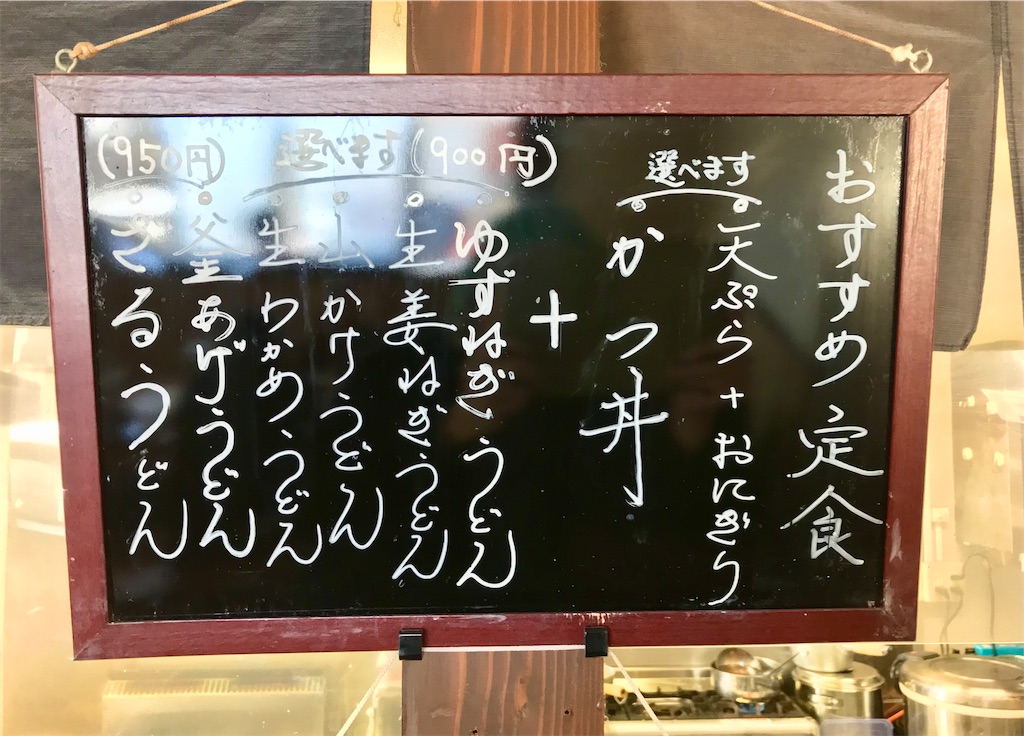 おすすめ定食
選べます
天ぷら+おにぎり
かつ丼
+
選べます(900円)
ゆずねぎうどん
生姜ねぎうどん
山かけうどん
生わかめうどん
(950円)
釜あげうどん
ざるうどん